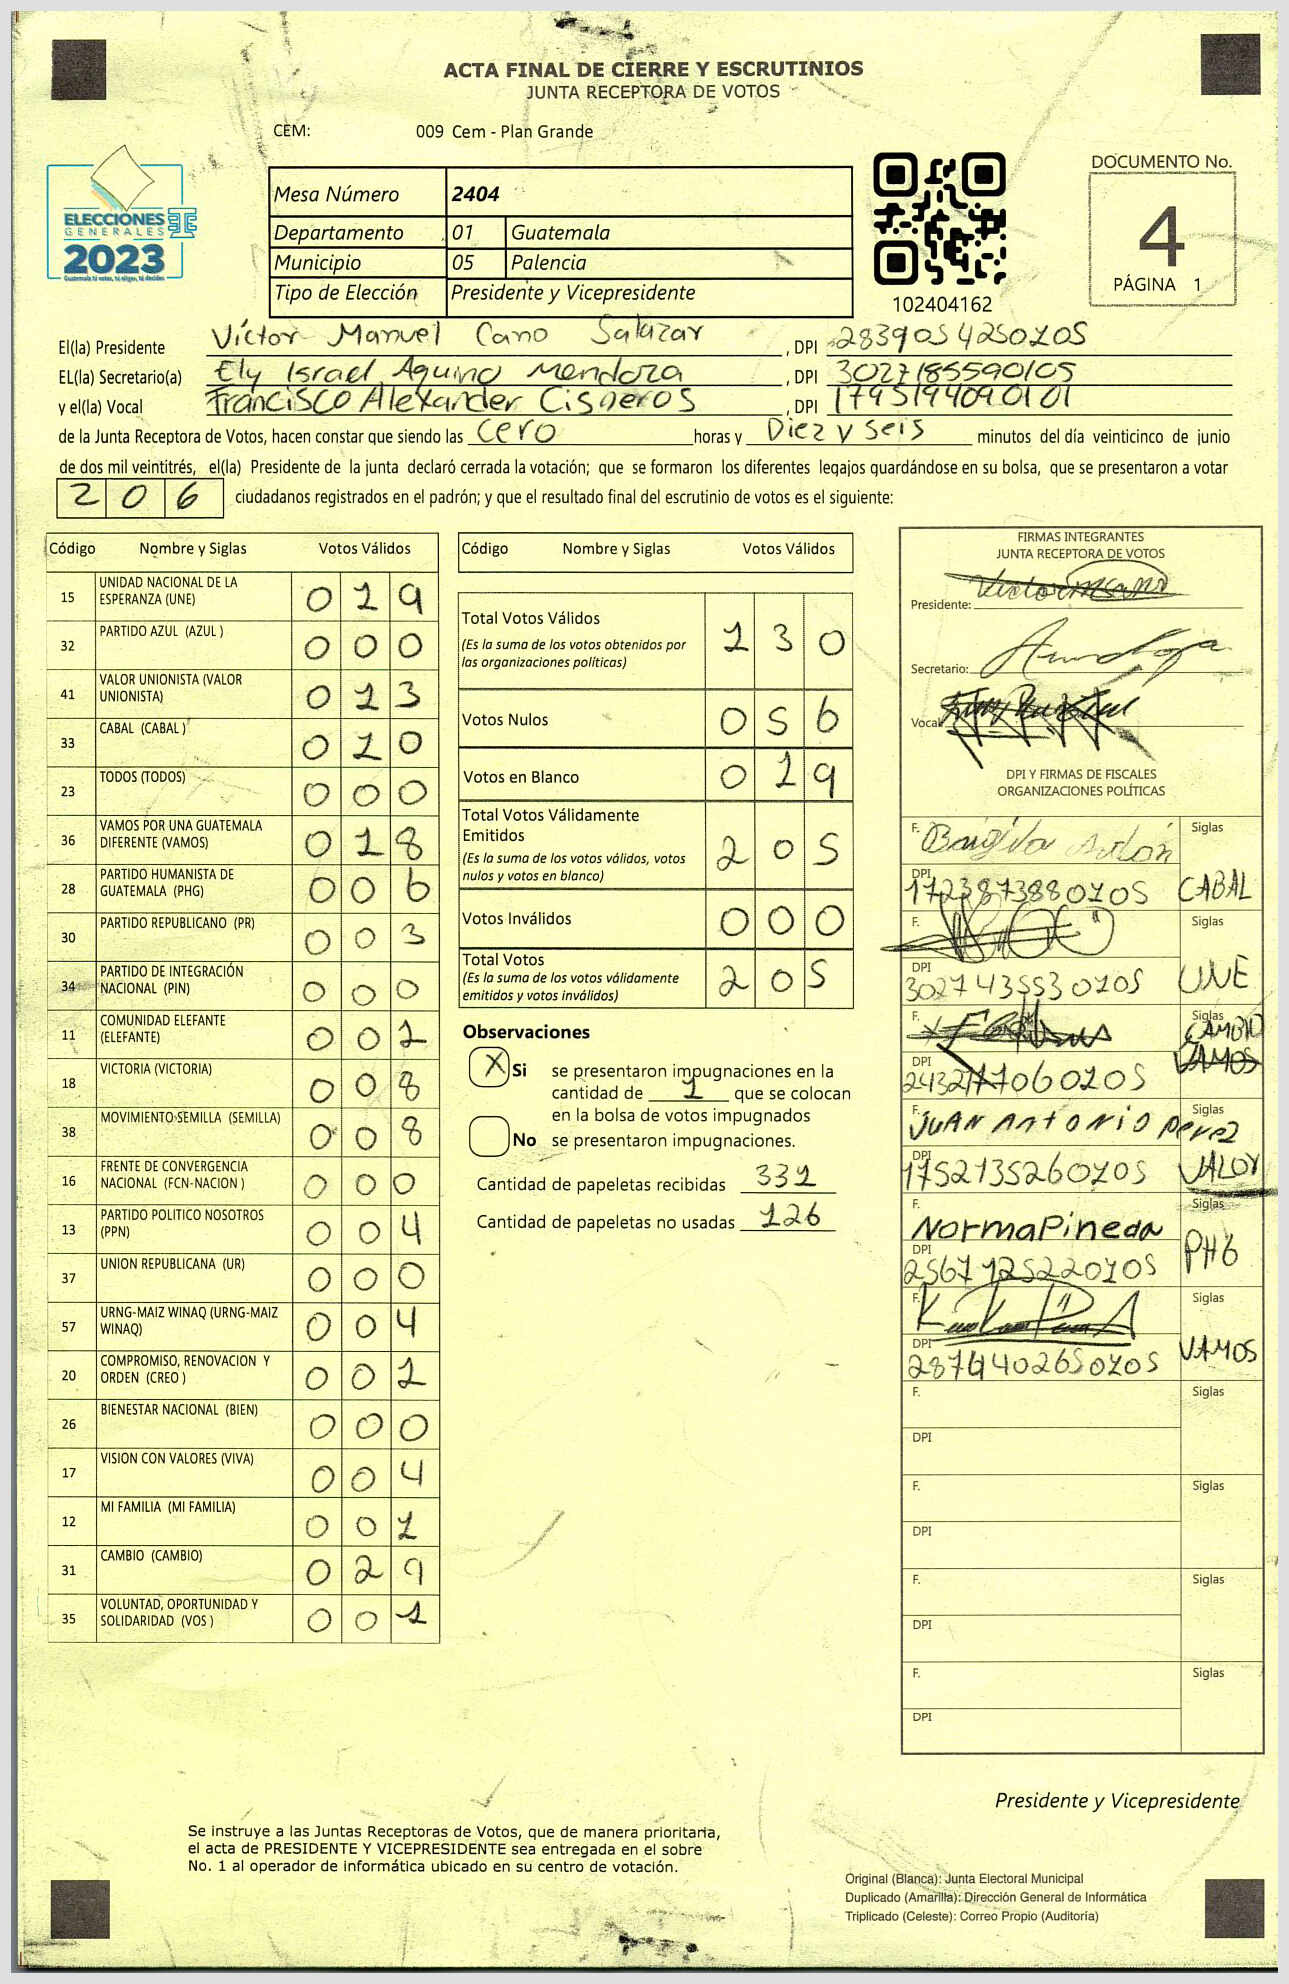 ACTA FINAL DE CIERRE Y ESCRUTINIOS
JUNTA RECEPTORA DE VOTOS
CEM: 009 Cem - Plan Grande
ELECCIONES
GENERALES
2023
Guatemala tú votas, tú eliges, tú decides
Mesa Número 2404
Departamento 01 Guatemala
Municipio 05 Palencia
Tipo de Elección Presidente y Vicepresidente
102404162
DOCUMENTO No.
4
PÁGINA 1
El(la) Presidente Víctor Manuel Cano Salazar , DPI 2839054250105
EL(la) Secretario(a) Ely Israel Aquino Mendoza , DPI 3027185590105
y el(la) Vocal Francisco Alexander Cisneros , DPI 1795194090101
de la Junta Receptora de Votos, hacen constar que siendo las Cero horas y Diez y seis minutos del día veinticinco de junio
de dos mil veintitrés, el(la) Presidente de la junta declaró cerrada la votación; que se formaron los diferentes legajos guardándose en su bolsa, que se presentaron a votar
206 ciudadanos registrados en el padrón; y que el resultado final del escrutinio de votos es el siguiente:
Código Nombre y Siglas Votos Válidos
15 UNIDAD NACIONAL DE LA ESPERANZA (UNE) 019
32 PARTIDO AZUL (AZUL ) 000
41 VALOR UNIONISTA (VALOR UNIONISTA) 013
33 CABAL (CABAL ) 010
23 TODOS (TODOS) 000
36 VAMOS POR UNA GUATEMALA DIFERENTE (VAMOS) 018
28 PARTIDO HUMANISTA DE GUATEMALA (PHG) 006
30 PARTIDO REPUBLICANO (PR) 003
34 PARTIDO DE INTEGRACIÓN NACIONAL (PIN) 000
11 COMUNIDAD ELEFANTE (ELEFANTE) 001
18 VICTORIA (VICTORIA) 008
38 MOVIMIENTO SEMILLA (SEMILLA) 008
16 FRENTE DE CONVERGENCIA NACIONAL (FCN-NACION ) 000
13 PARTIDO POLITICO NOSOTROS (PPN) 004
37 UNION REPUBLICANA (UR) 000
57 URNG-MAIZ WINAQ (URNG-MAIZ WINAQ) 004
20 COMPROMISO, RENOVACION Y ORDEN (CREO ) 001
26 BIENESTAR NACIONAL (BIEN) 000
17 VISION CON VALORES (VIVA) 004
12 MI FAMILIA (MI FAMILIA) 001
31 CAMBIO (CAMBIO) 029
35 VOLUNTAD, OPORTUNIDAD Y SOLIDARIDAD (VOS ) 001
Código Nombre y Siglas Votos Válidos
Total Votos Válidos 130
(Es la suma de los votos obtenidos por
las organizaciones políticas)
Votos Nulos 056
Votos en Blanco 019
Total Votos Válidamente
Emitidos 205
(Es la suma de los votos válidos, votos
nulos y votos en blanco)
Votos Inválidos 000
Total Votos 205
(Es la suma de los votos válidamente
emitidos y votos inválidos)
Observaciones
X Si se presentaron impugnaciones en la
cantidad de 1 que se colocan
en la bolsa de votos impugnados
No se presentaron impugnaciones.
Cantidad de papeletas recibidas 331
Cantidad de papeletas no usadas 126
FIRMAS INTEGRANTES
JUNTA RECEPTORA DE VOTOS
Presidente:
Secretario:
Vocal
DPI Y FIRMAS DE FISCALES
ORGANIZACIONES POLÍTICAS
F. Siglas
DPI 1723873880105 CABAL
F. Siglas
DPI 3027435530105 UNE
F. Siglas CAMBIO
VAMOS
DPI 2432177060105
F. JUAN ANTONIO Perez Siglas
DPI 1752135260105 VALOR
F. Norma Pineda Siglas
DPI 2567125220105 PHG
F. Siglas
DPI 2874402650105 VAMOS
F. Siglas
DPI
F. Siglas
DPI
F. Siglas
DPI
F. Siglas
DPI
Presidente y Vicepresidente
Se instruye a las Juntas Receptoras de Votos, que de manera prioritaria,
el acta de PRESIDENTE Y VICEPRESIDENTE sea entregada en el sobre
No. 1 al operador de informática ubicado en su centro de votación.
Original (Blanca): Junta Electoral Municipal
Duplicado (Amarilla): Dirección General de Informática
Triplicado (Celeste): Correo Propio (Auditoría)